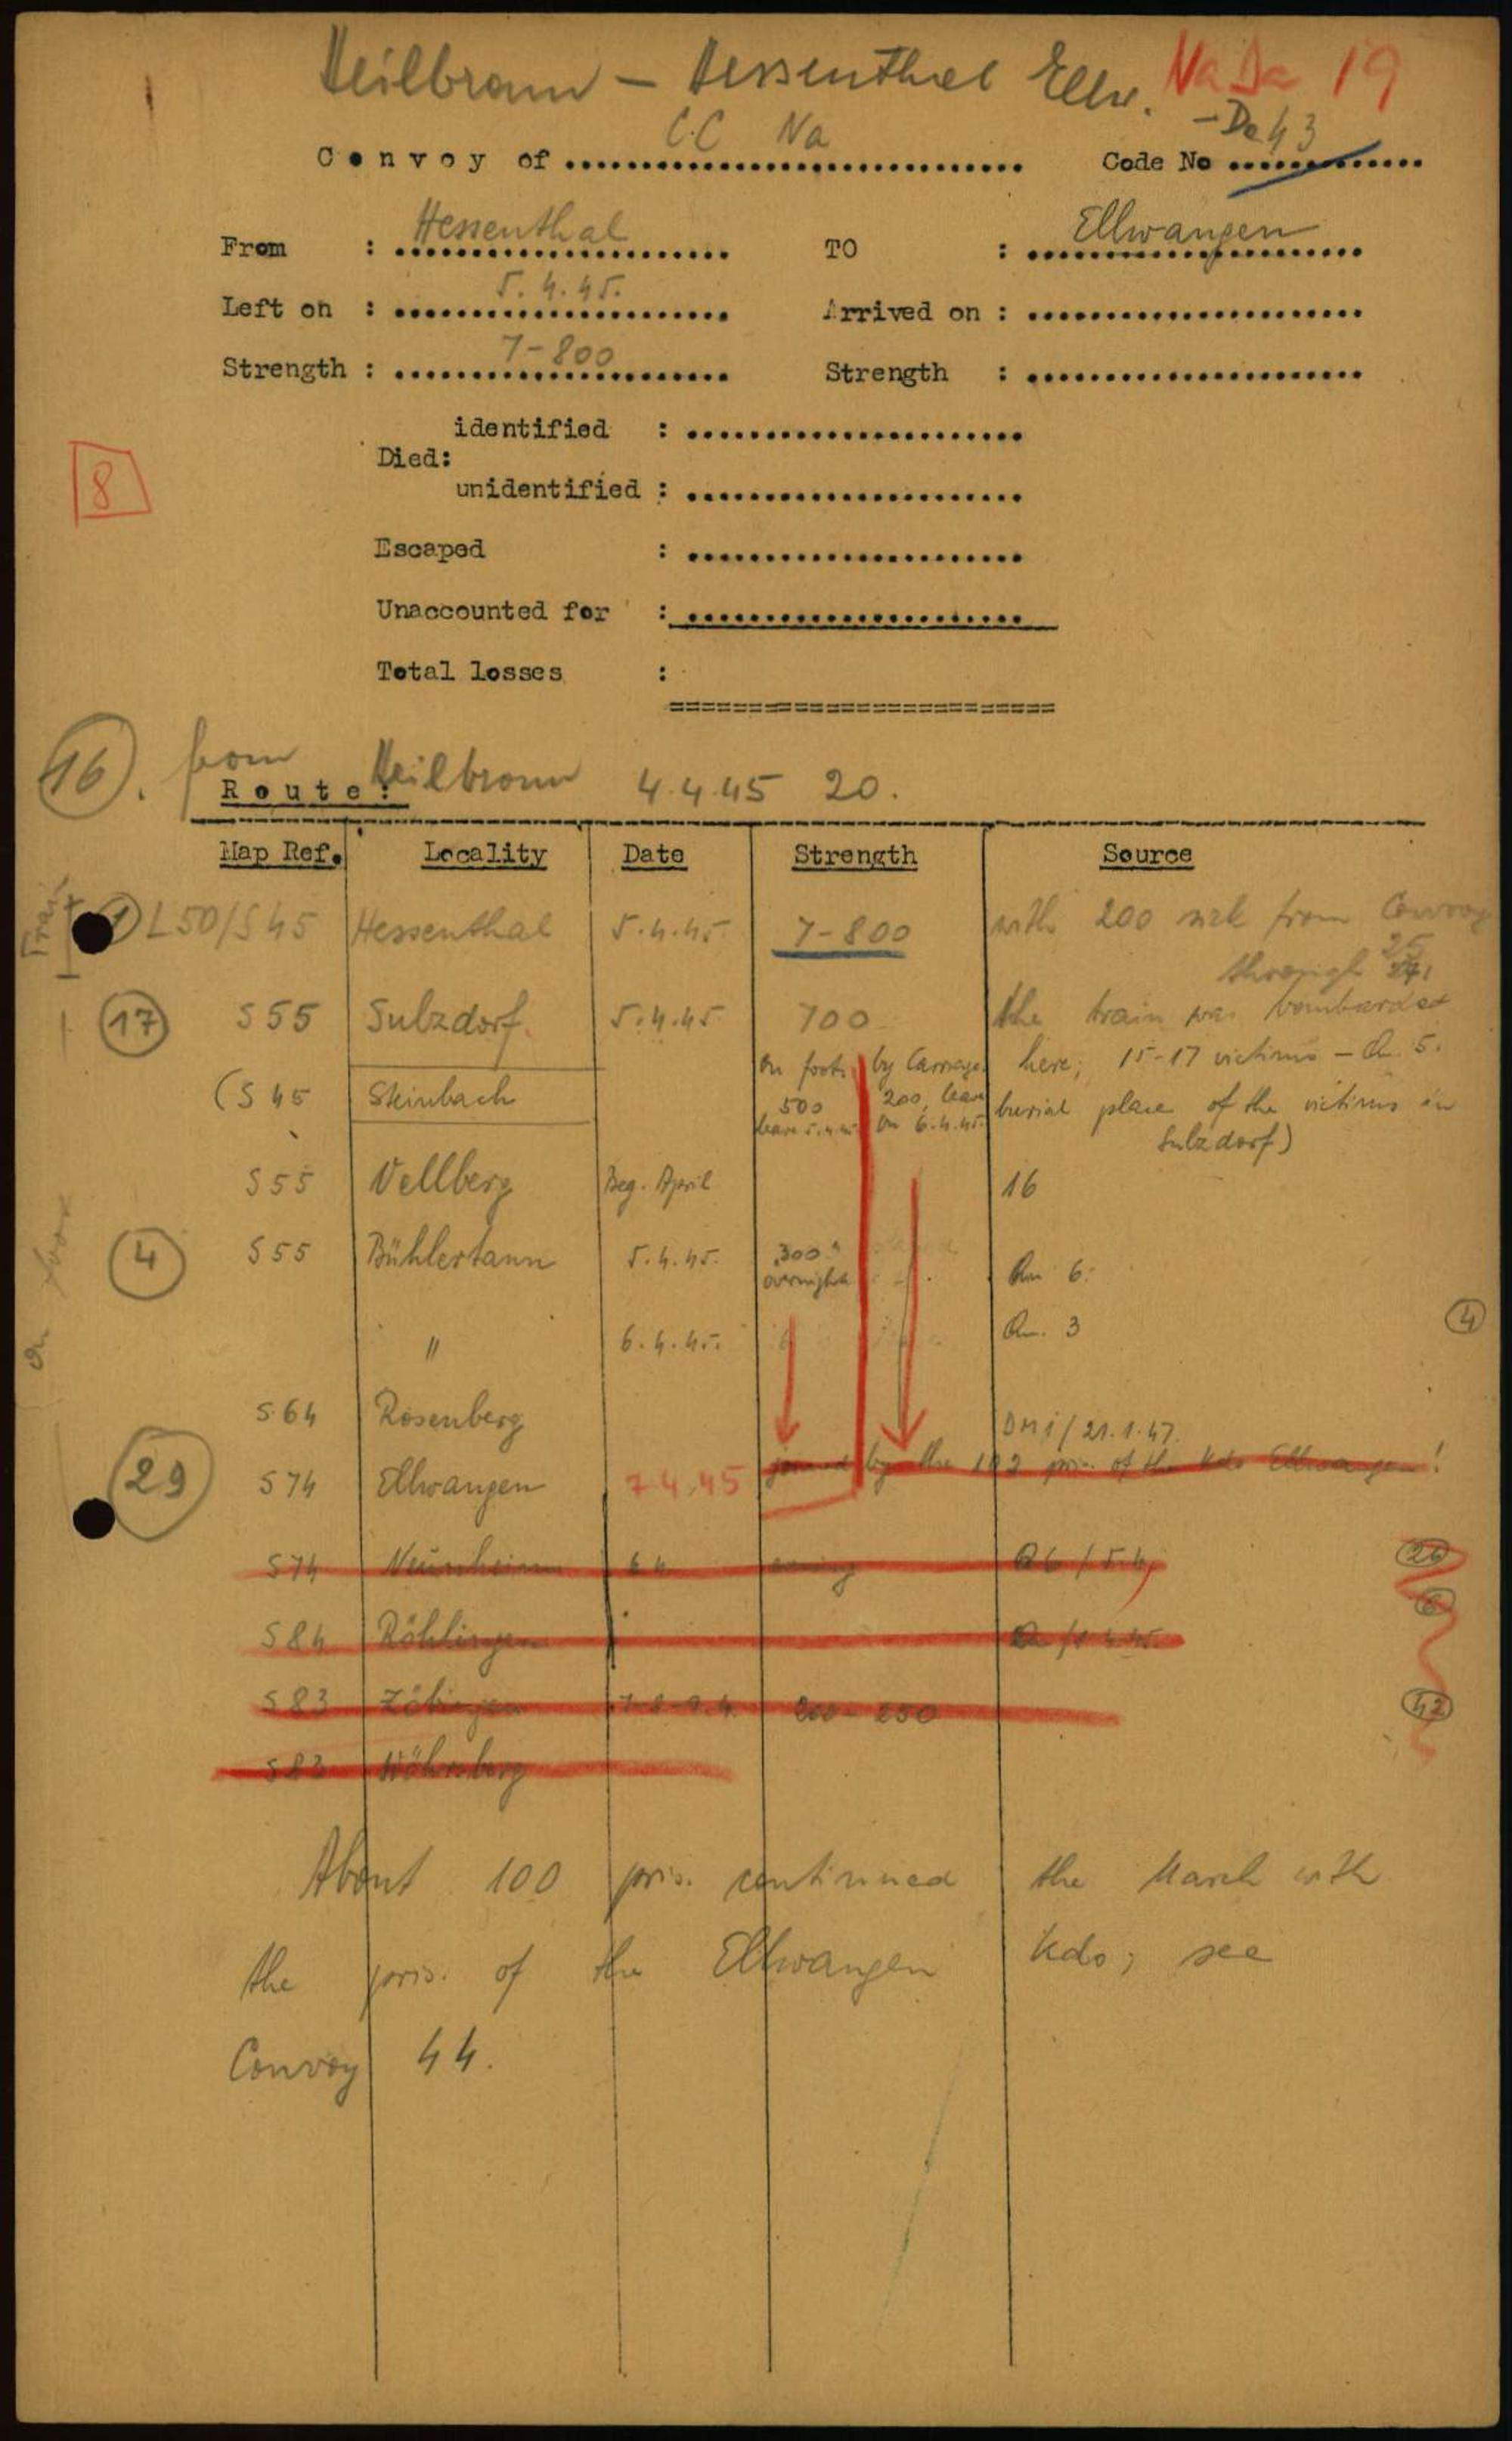 Heilbronn – Hessenthal Ellw. Na Da 19
– De 43
Convoy of C.C Na Code No
From : Hessenthal TO : Ellwangen
Left on : 5.4.45. Arrived on :
Strength : 7-800 Strength :
identified :
Died:
8
unidentified :
Escaped :
Unaccounted for :
Total losses :
16. from
Route: Heilbronn 4.4.45 20.
Map Ref. Locality Date Strength Source
L50/S45 Hessenthal 5.4.45. 7-800 with 200 sick from Convoy
through 25
17 S55 Sulzdorf. 5.4.45 700 the train was bombarded
on foot, by Carriage here; 15-17 victims – Qu. 5.
(S45 Steinbach 500 200, leave burial place of the victims in
leave 5.4.45 on 6.4.45. Sulzdorf)
S55 Vellberg Beg. April 16
4 S55 Bühlertann 5.4.45. 300 overnight Qu. 6.
" 6.4.45. Qu. 3 4
S64 Rosenberg DMi/21.1.47.
29 S74 Ellwangen 7.4.45 joined by the 102 pris. of the Kdo Ellwangen!
S74 Neunheim 6.4. Q6 / 5.4. 26
S84 Röhlingen
S83 Zöbingen 7-8-9.4. 200-250 42
S83 Wöhrsberg
About 100 pris. continued the March with
the pris. of the Ellwangen Kdo; see
Convoy 44.